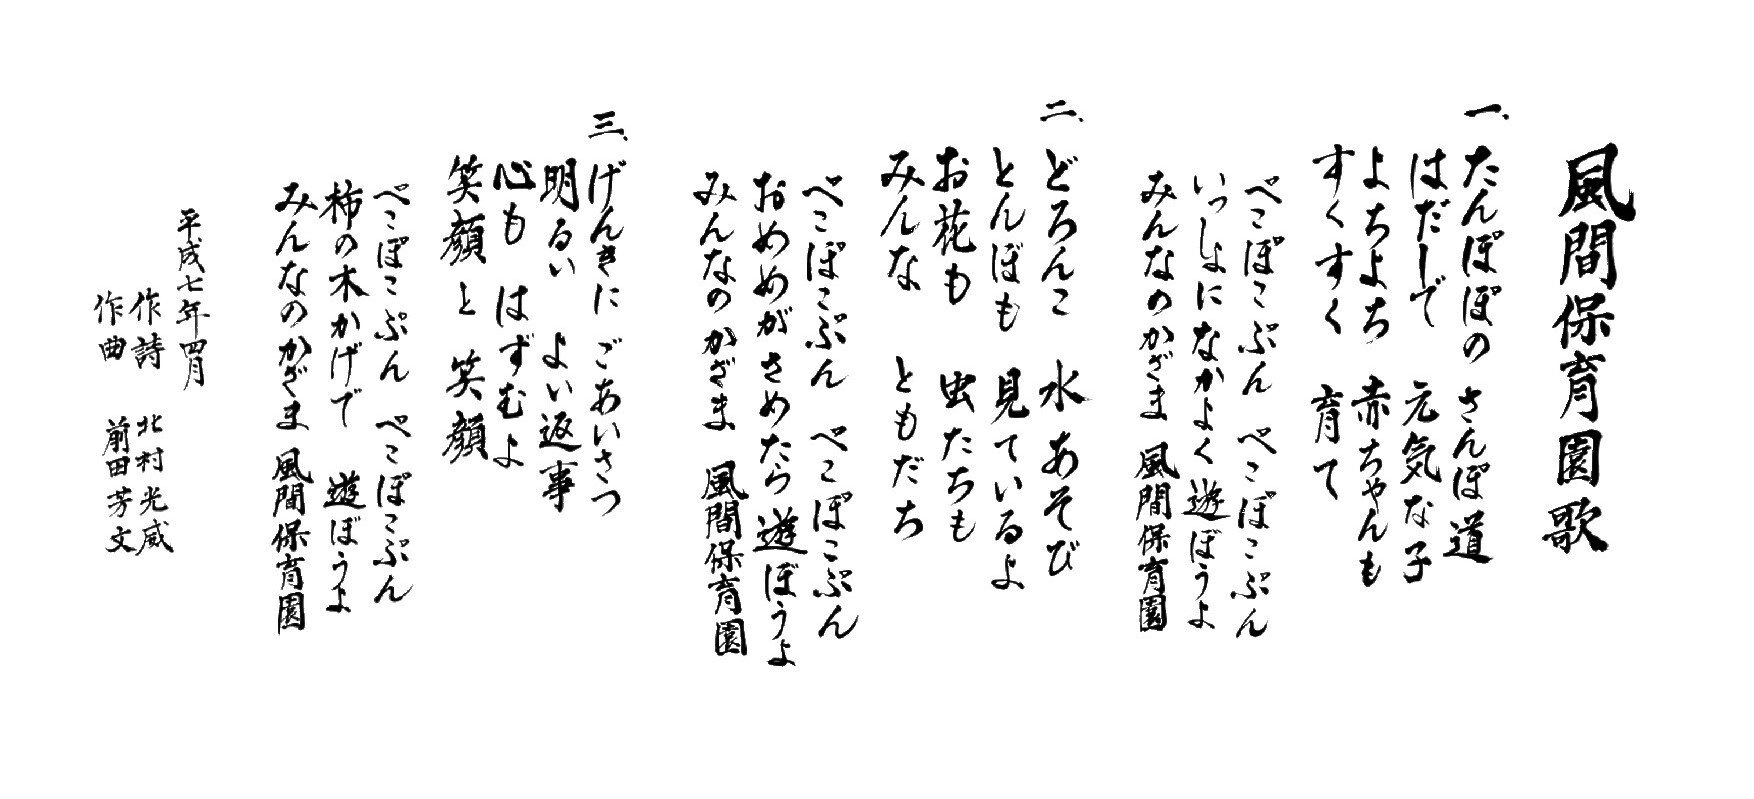 風間保育園歌
一、たんぽぽの さんぽ道
はだしで 元気な子
よちよち 赤ちゃんも
すくすく 育て
ぺこぽこぷん ぺこぽこぷん
いっしょになかよく遊ぼうよ
みんなのかざま 風間保育園
二、どろんこ 水あそび
とんぼも 見ているよ
お花も 虫たちも
みんな ともだち
ぺこぽこぷん ぺこぽこぷん
おめめがさめたら遊ぼうよ
みんなのかざま 風間保育園
三、げんきに ごあいさつ
明るい よい返事
心も はずむよ
笑顔と 笑顔
ぺこぽこぷん ぺこぽこぷん
柿の木かげで 遊ぼうよ
みんなのかざま 風間保育園
平成七年四月
作詩 北村光威
作曲 前田芳文